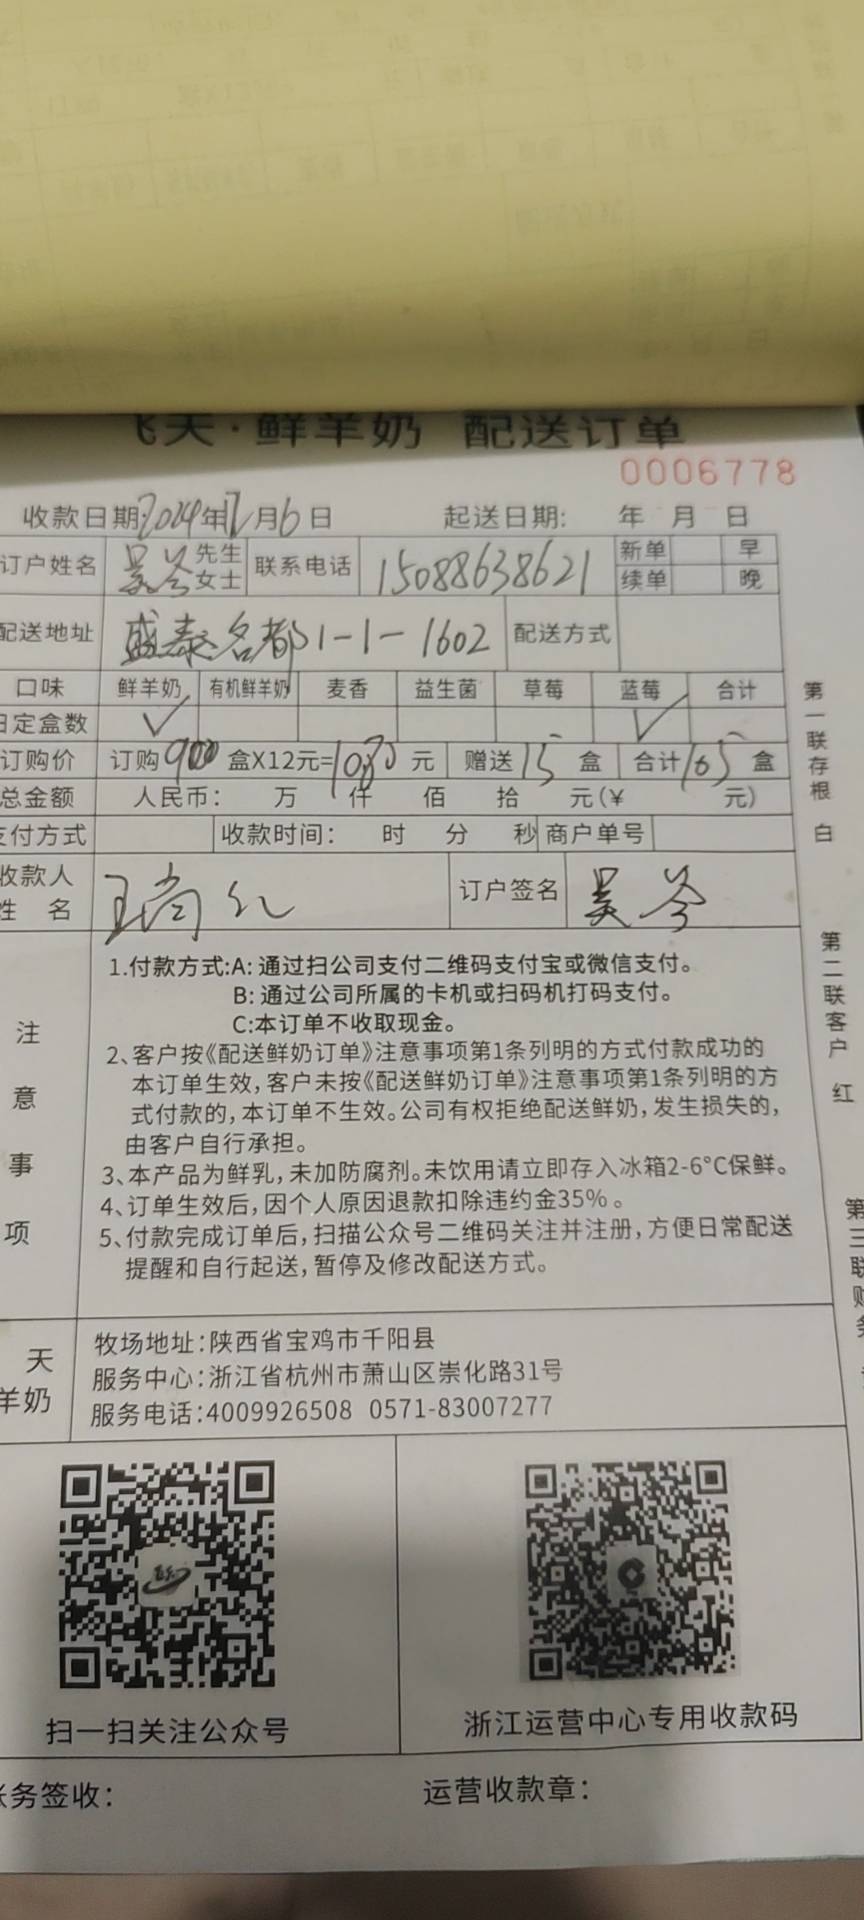 飞天·鲜羊奶 配送订单
0006778
收款日期:2024年12月6日 起送日期: 年 月 日
订户姓名 吴芩 先生 女士 联系电话 15088638621 新单 早 续单 晚
配送地址 盛泰名都1-1-1602 配送方式
口味 鲜羊奶 有机鲜羊奶 麦香 益生菌 草莓 蓝莓 合计
日定盒数 ✓ ✓
订购价 订购90盒X12元=1080元 赠送15盒 合计105盒
总金额 人民币: 万 仟 佰 拾 元(¥ 元)
支付方式 收款时间: 时 分 秒 商户单号
收款人姓名 王尚仁 订户签名 吴芩
注意事项
1.付款方式:A:通过扫公司支付二维码支付宝或微信支付。
B:通过公司所属的卡机或扫码机打码支付。
C:本订单不收取现金。
2、客户按《配送鲜奶订单》注意事项第1条列明的方式付款成功的
本订单生效,客户未按《配送鲜奶订单》注意事项第1条列明的方
式付款的,本订单不生效。公司有权拒绝配送鲜奶,发生损失的,
由客户自行承担。
3、本产品为鲜乳,未加防腐剂。未饮用请立即存入冰箱2-6°C保鲜。
4、订单生效后,因个人原因退款扣除违约金35%。
5、付款完成订单后,扫描公众号二维码关注并注册,方便日常配送
提醒和自行起送,暂停及修改配送方式。
天
羊奶
牧场地址:陕西省宝鸡市千阳县
服务中心:浙江省杭州市萧山区崇化路31号
服务电话:4009926508 0571-83007277
扫一扫关注公众号
浙江运营中心专用收款码
账务签收: 运营收款章:
第一联存根 白
第二联客户 红
第三联财务